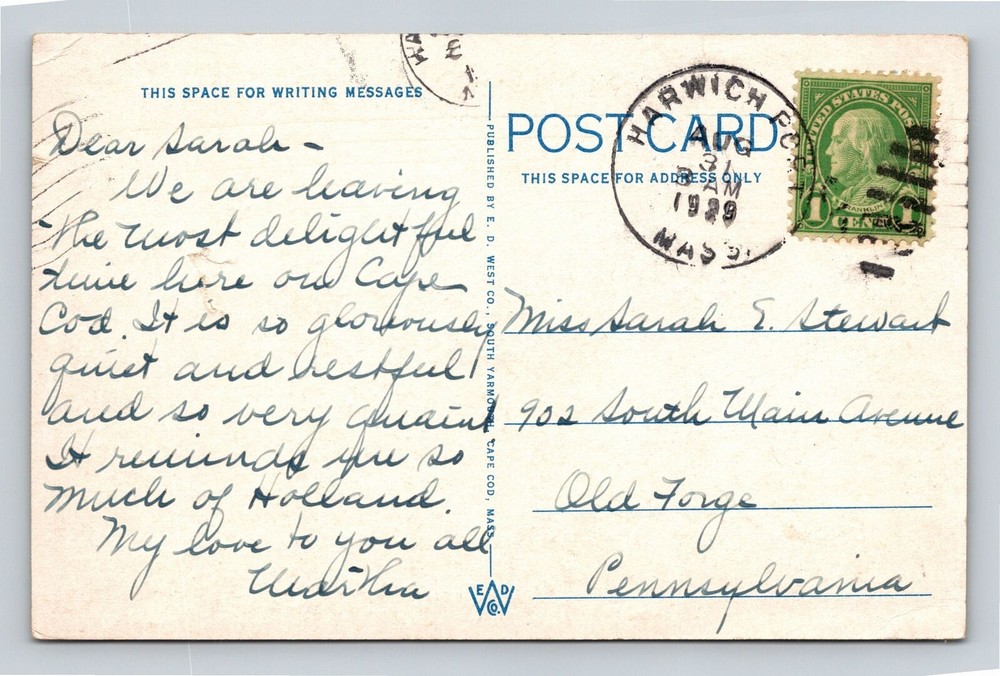 THIS SPACE FOR WRITING MESSAGES
Dear Sarah -
We are having
the most delightful
time here on Cape
Cod. It is so gloriously
quiet and restful
and so very quaint
It reminds me so
much of Holland.
My love to you all
Martha
PUBLISHED BY E. D. WEST CO., SOUTH YARMOUTH, CAPE COD, MASS.
E D
W
CO.
POST CARD
THIS SPACE FOR ADDRESS ONLY
HARWICH PORT
AUG
31
8 AM
1929
MASS.
UNITED STATES POSTAGE
FRANKLIN
1 CENT 1
Miss Sarah E. Stewart
902 South Main Avenue
Old Forge
Pennsylvania